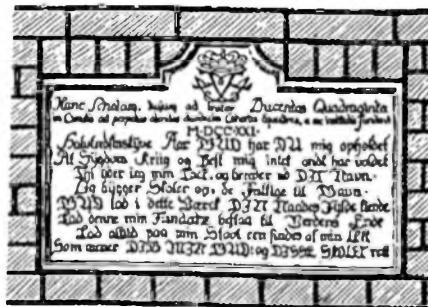 Hanc Scholam, hujus ad instar Ducentas Quadraginta
Cohortis Equestris, a se
M·DCC·XXI·
Halvtredsindstyve Aar GUD har DU mig opholdet
At Sygdom Kriig og Pest mig intet ondt har voldet
Thi yder jeg min Tack, og breder ud DIT Navn
Og bygger Skoler op, de Fattige til Gavn
GUD lad i dette Værck DIN Naades Fylde kiende
Lad denne min Fundatz bestaa til Verdens Ende
Lad altid paa min Stool een findes af min Æt
Som meener DIG MIN GUD: og DISSE SKOLER rett